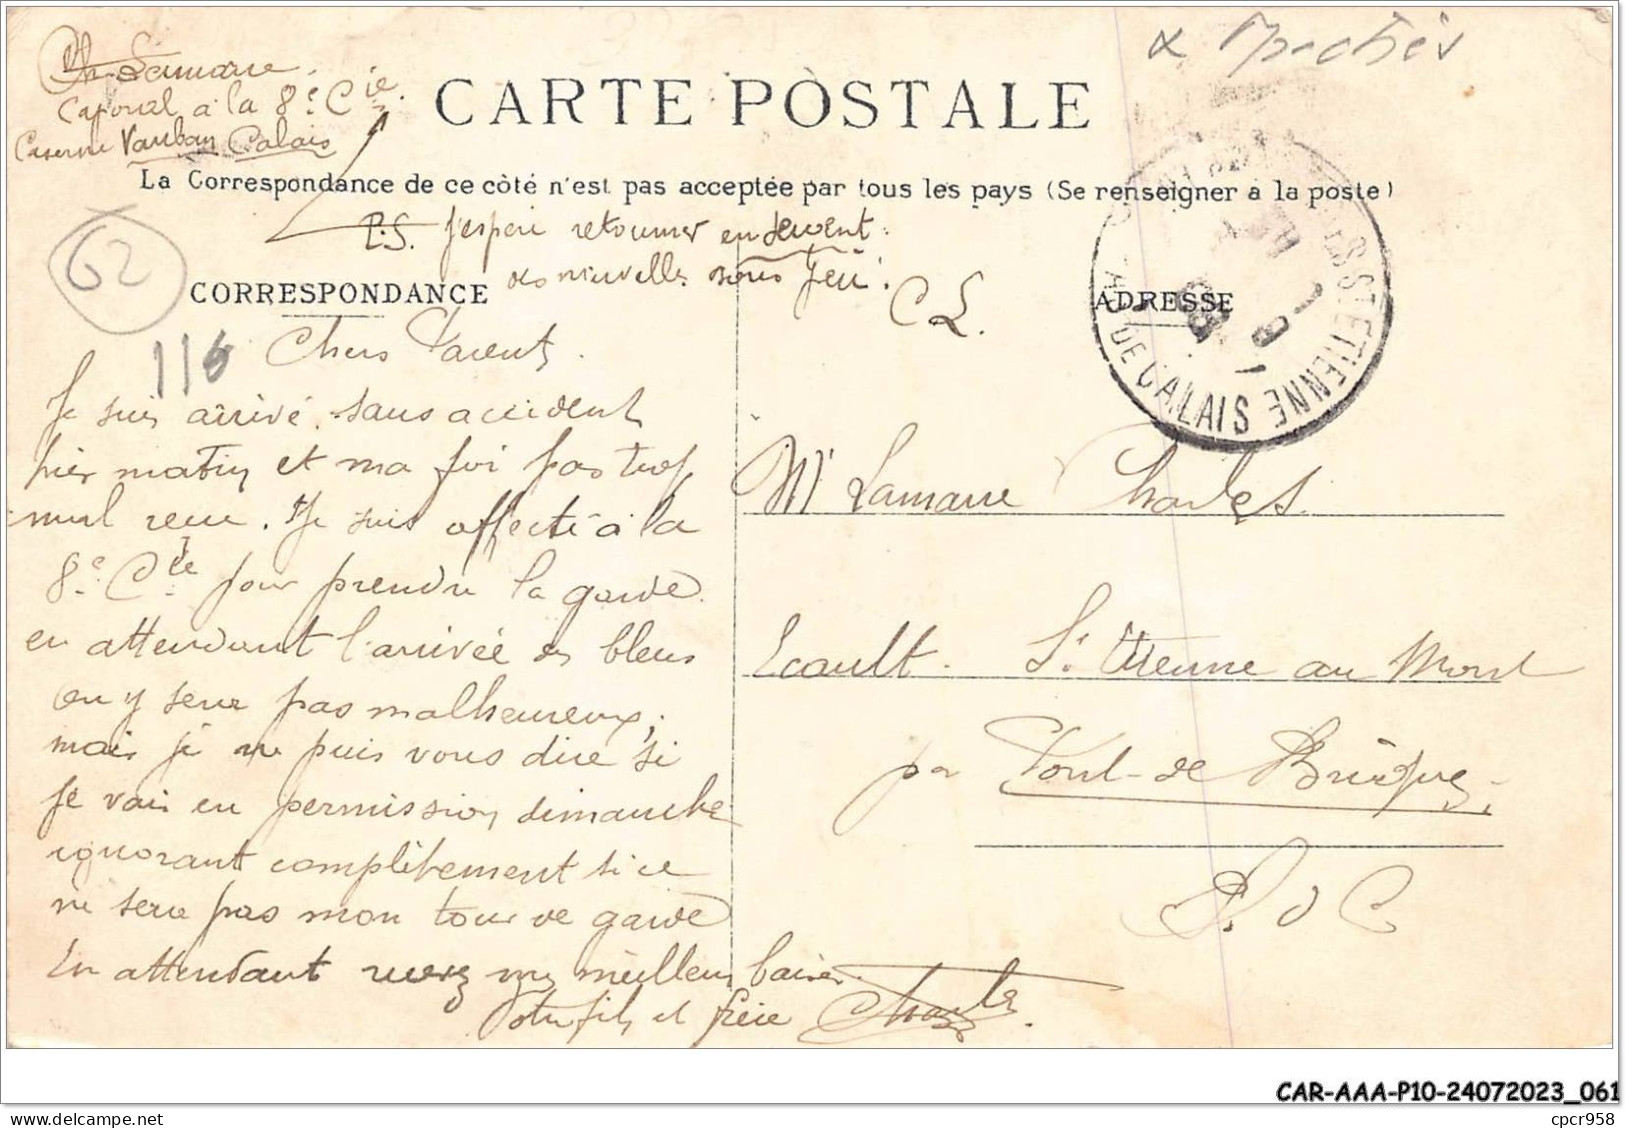 Ch. Lamarre.
Caporal à la 8e Cie.
Caserne Vauban Calais
CARTE POSTALE
La Correspondance de ce côté n'est pas acceptée par tous les pays (Se renseigner à la poste)
P.S. J'espère retourner en devent
des nouvelles sous peu.
C L.
62
CORRESPONDANCE
ADRESSE
116
ST ETIENNE
PAS DE CALAIS
Chers Parents.
Je suis arrivé sans accident
hier matin et ma foi pas trop
mal recu. Je suis affecté à la
8e Cie pour prendre la garde
en attendant l'arrivée des bleus
on y sera pas malheureux,
mais je ne puis vous dire si
je vais en permission dimanche
ignorant complètement si ce
ne sera pas mon tour de garde
En attendant recevez mes meilleurs baisers.
Votre fils et frère Charles
Mr Lamarre Charles
Ecault. St Etienne au Mont
par Pont-de Briques.
P. d C
CAR-AAA-P10-24072023_061
cpcr958